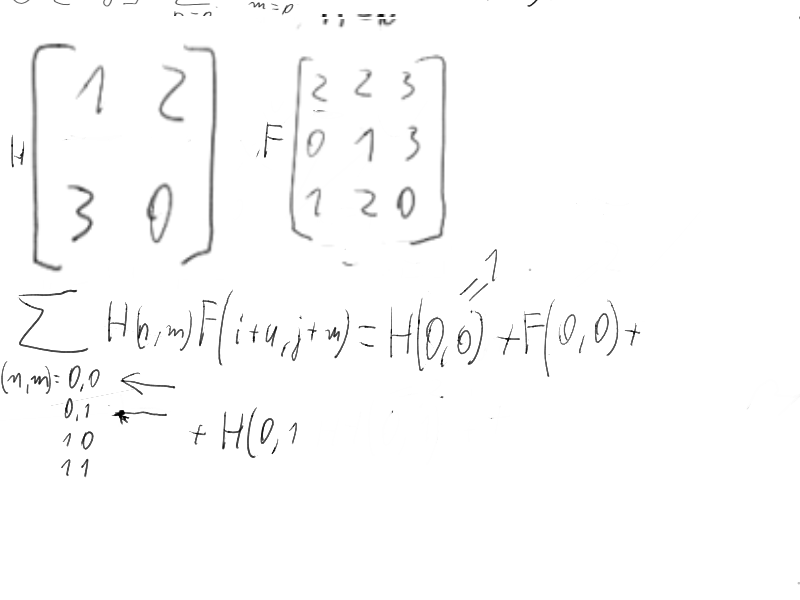 m=0
H [ 1 2
3 0 ]
F [ 2 2 3
0 1 3
1 2 0 ]
= 1
∑ H(n,m)F(i+n,j+m) = H(0,0) + F(0,0) +
(n,m)= 0,0 ←
0,1 ←
1 0
1 1
+ H(0,1